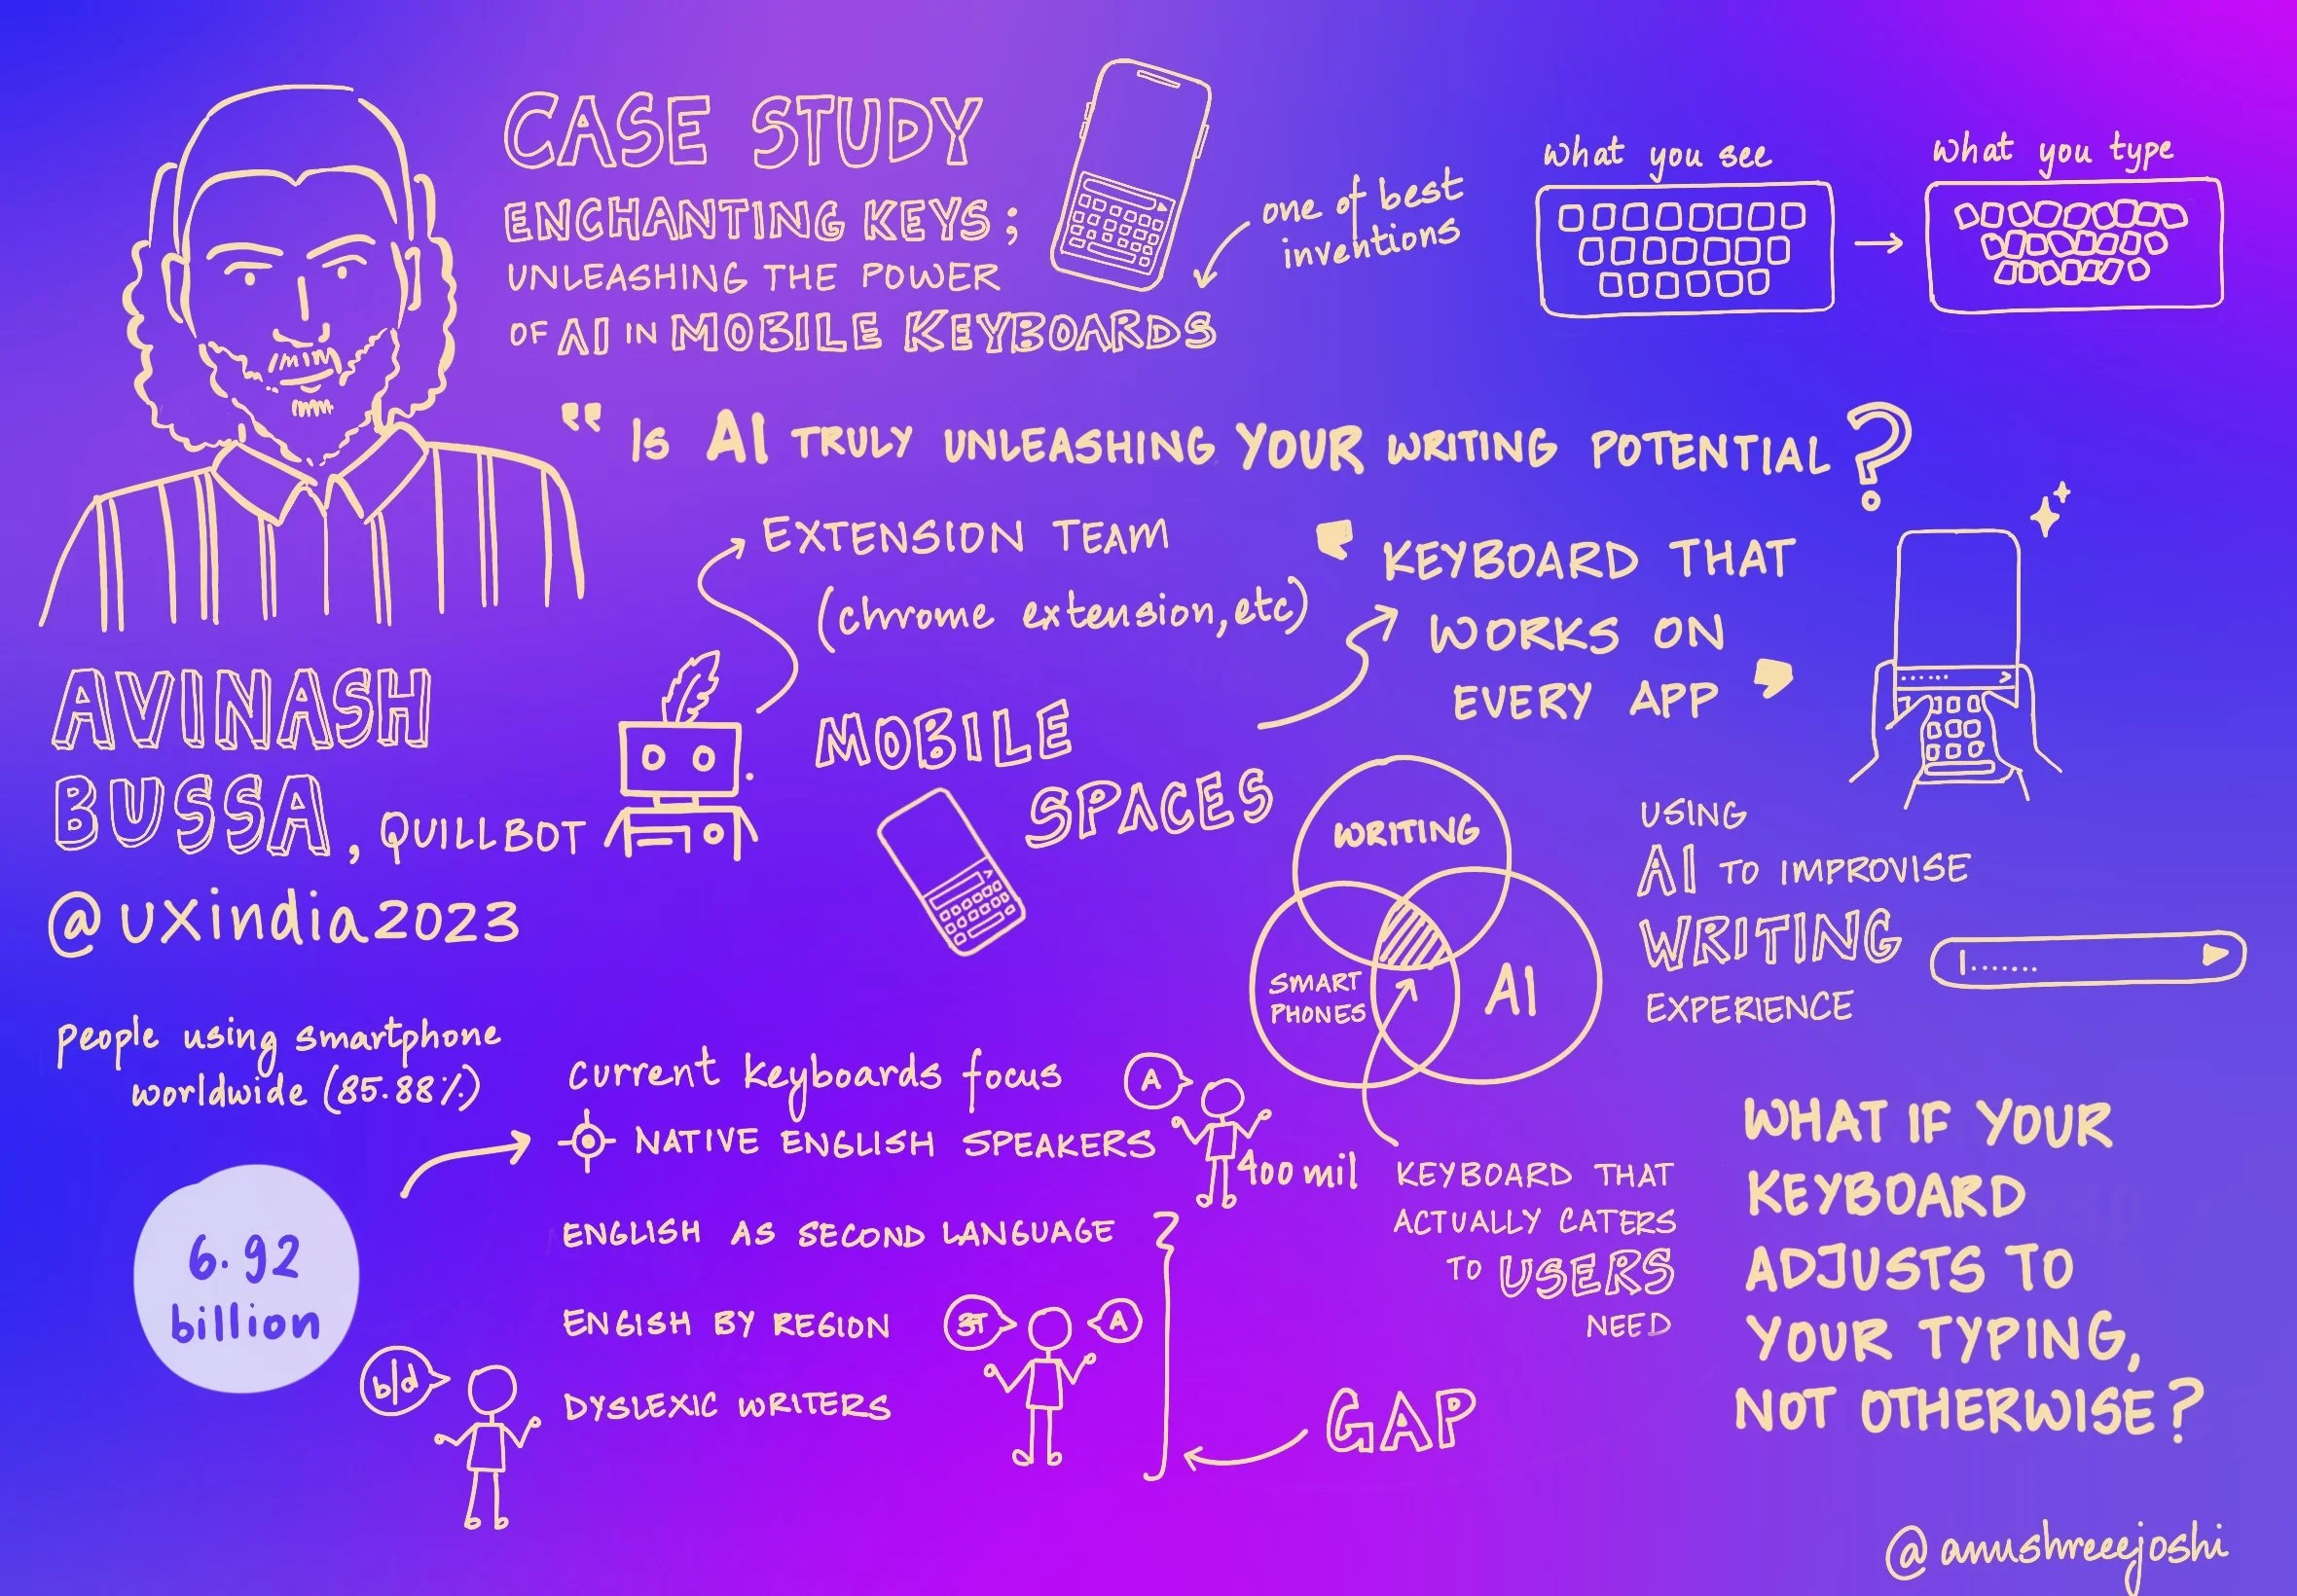 CASE STUDY
ENCHANTING KEYS;
UNLEASHING THE POWER
OF AI IN MOBILE KEYBOARDS
one of best
inventions
What you see
What you type
" IS AI TRULY UNLEASHING YOUR WRITING POTENTIAL?
EXTENSION TEAM
(chrome extension, etc)
' KEYBOARD THAT
WORKS ON
EVERY APP '
AVINASH
BUSSA, QUILLBOT
@uxindia2023
MOBILE
SPACES
WRITING
SMART
PHONES
AI
USING
AI TO IMPROVISE
WRITING
EXPERIENCE
people using smartphone
worldwide (85.88%)
6.92
billion
current keyboards focus
NATIVE ENGLISH SPEAKERS
A
400 mil
ENGLISH AS SECOND LANGUAGE
ENGISH BY REGION
A
DYSLEXIC WRITERS
b|d
GAP
KEYBOARD THAT
ACTUALLY CATERS
TO USERS
NEED
WHAT IF YOUR
KEYBOARD
ADJUSTS TO
YOUR TYPING,
NOT OTHERWISE?
@anushreeejoshi